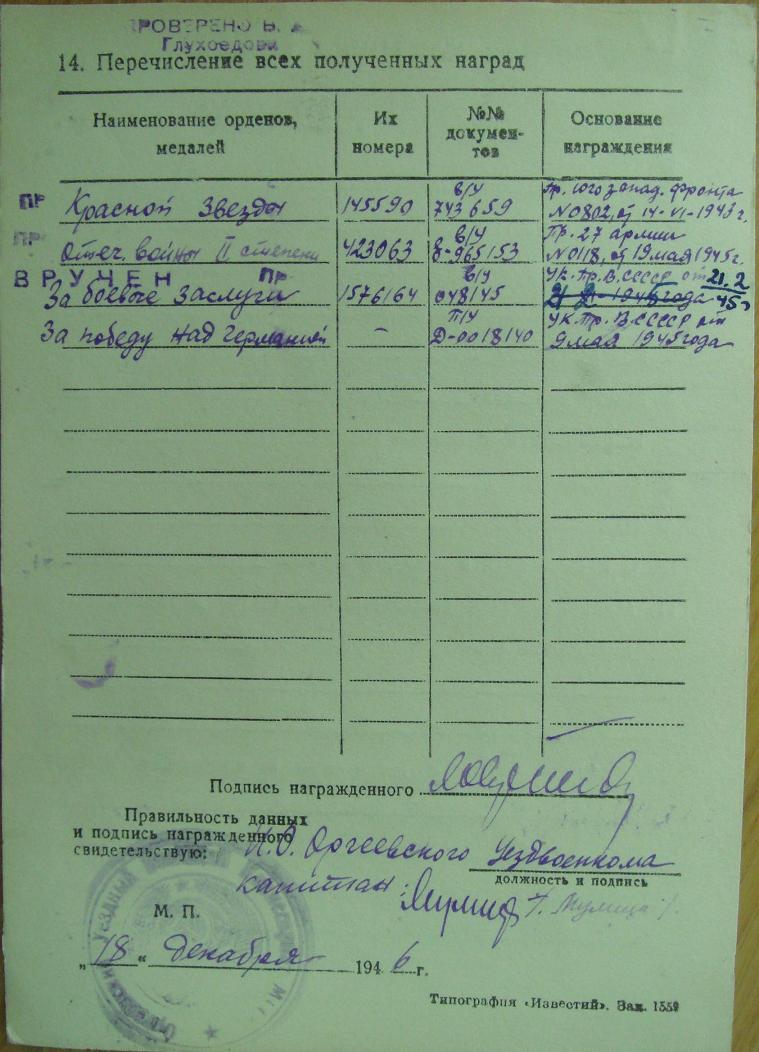 ПРОВЕРЕНО
Глухоедова
14. Перечисление всех полученных наград
Наименование орденов, медалей
Их номера
№№ документов
Основание награждения
ПР Красной Звезды 145590 в/у 743659 Пр. юго запад. фронта №0802, от 14-VI-1943 г.
ПР Отеч. войны II степени 423063 в/у Б-965153 Пр. 27 армии №0118, от 19 мая 1945 г.
ВРУЧЕН ПР
За боевые заслуги 1576164 в/у 048145 Ук. Пр. В. СССР от 21.2 45г
За победу над Германией - П/у Д-0018140 Ук. Пр. В. СССР от 9 мая 1945 года
Подпись награжденного
Правильность данных
и подпись награжденного
свидетельствую: И.О. Оргеевского Уездвоенкома
должность и подпись
капитан:
М. П.
„18“ декабря 1946 г.
Типография «Известий». Зак. 1559